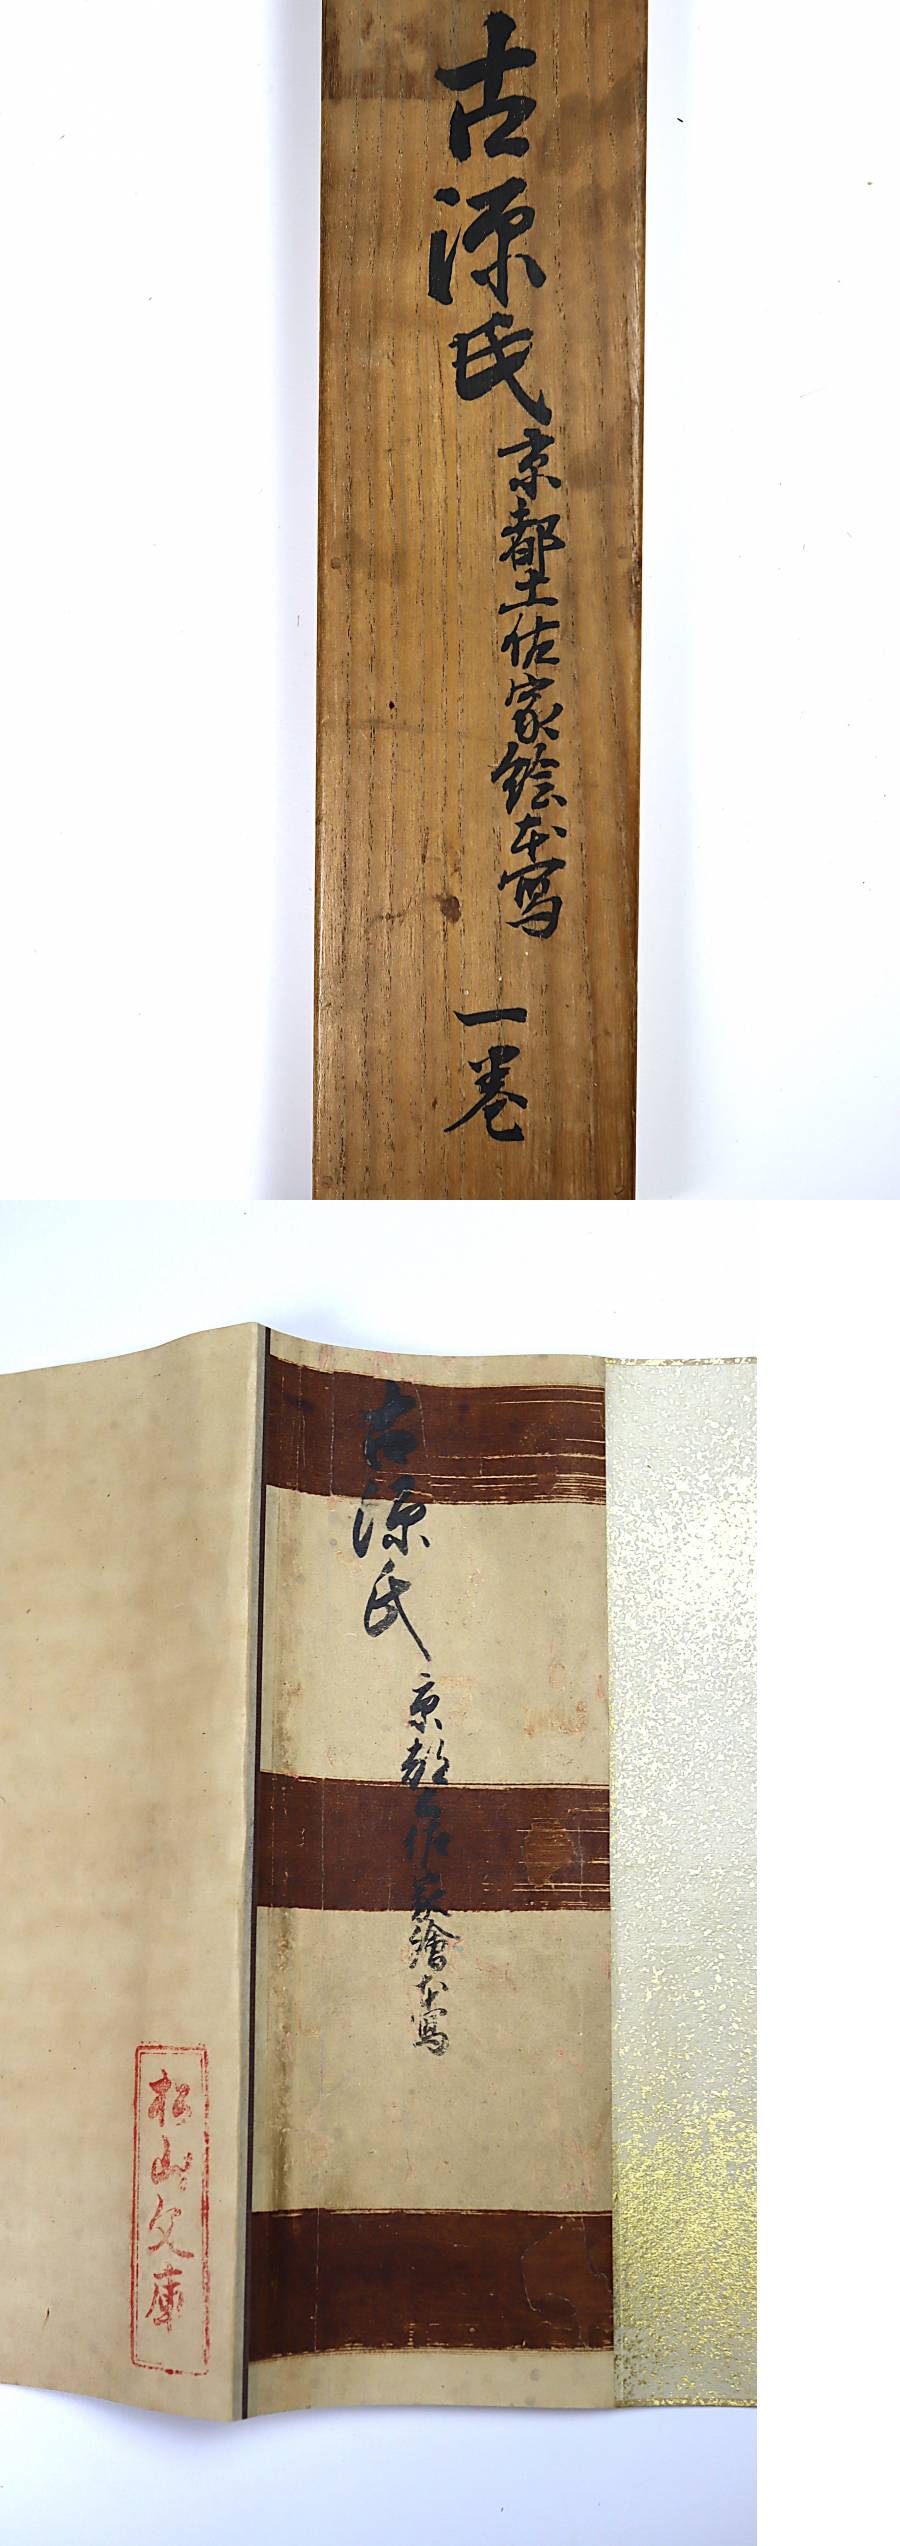 古源氏
京都土佐家絵本写
一巻
古源氏
京都土佐家繪本寫
松山文庫